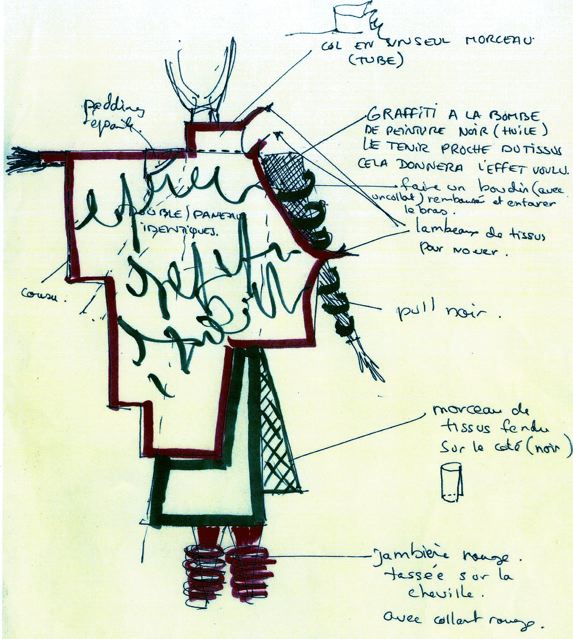 COL EN UN SEUL MORCEAU
(TUBE)
padding
epaule.
GRAFFITI A LA BOMBE
DE PEINTURE NOIR (HUILE)
LE TENIR PROCHE DU TISSUS
CELA DONNERA L'EFFET VOULU.
faire un boudin (avec
un collat) rembaussé et entourer
le bras.
lambeaux de tissus
pour nouer.
DOUBLE / PANEAU
IDENTIQUES.
cousu.
pull noir.
morceau de
tissus fendu
sur le coté (noir)
Jambière rouge.
tassée sur la
cheville.
avec collant rouge.